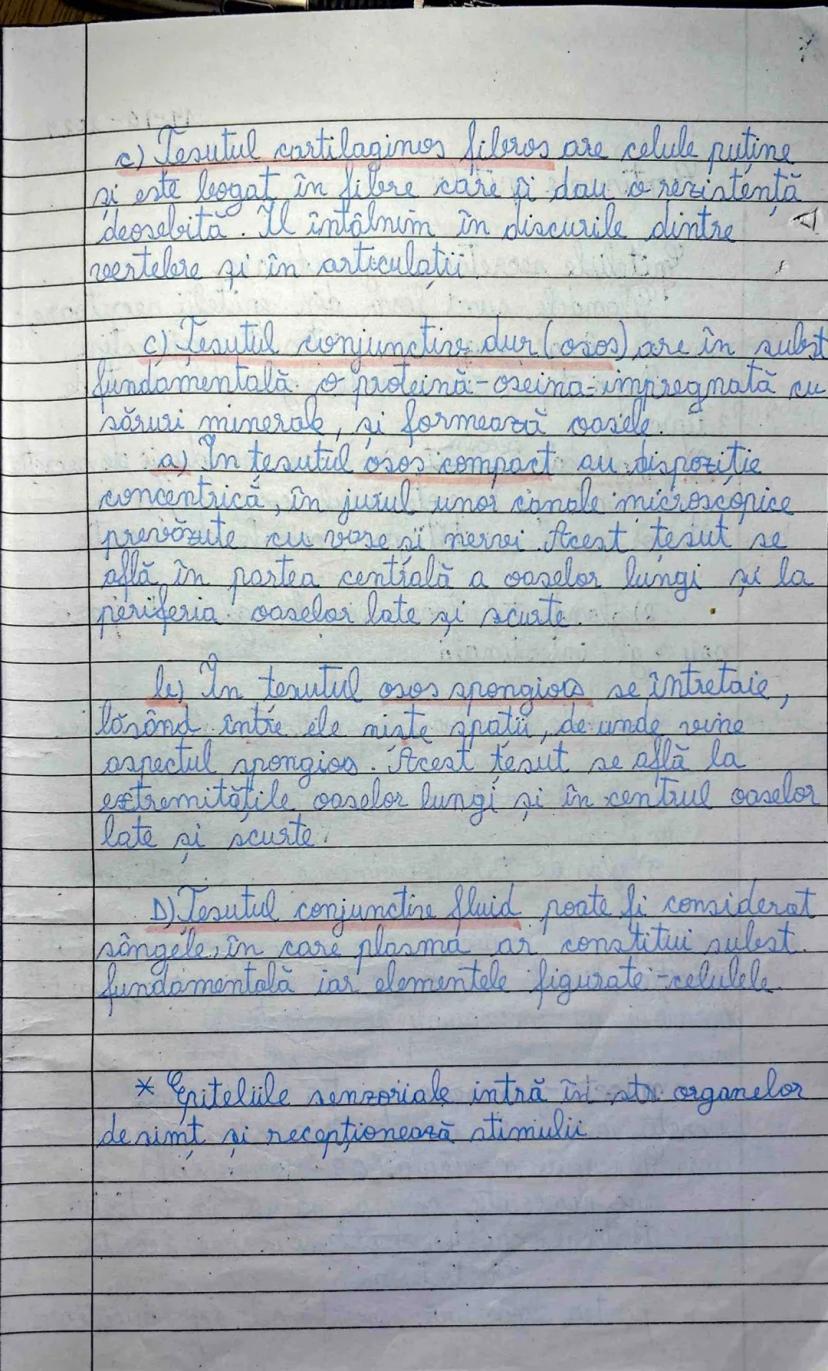 c) Țesutul cartilaginos fibros are celule puține
și este bogat în fibre care îi dau o rezistență
deosebită. Îl întâlnim în discurile dintre
vertebre și în articulații
C) Țesutul conjunctiv dur (osos) are în subst
fundamentală o proteină-oseina-impregnată cu
săruri minerale, și formează oasele.
a) În țesutul osos compact au dispoziție
concentrică, în jurul unor canale microscopice
prevăzute cu vase și nervi. Acest țesut se
află în partea centrală a oaselor lungi și la
periferia oaselor late și scurte.
b) În țesutul osos spongios se întretaie,
lăsând între ele niște spații, de unde vine
aspectul spongios. Acest țesut se află la
extremitățile oaselor lungi și în centrul oaselor
late și scurte.
D) Țesutul conjunctiv fluid poate fi considerat
sângele, în care plasma ar constitui subst.
fundamentală iar elementele figurate-celulele.
* Epiteliile senzoriale intră în str. organelor
de simț și recepționează stimulii